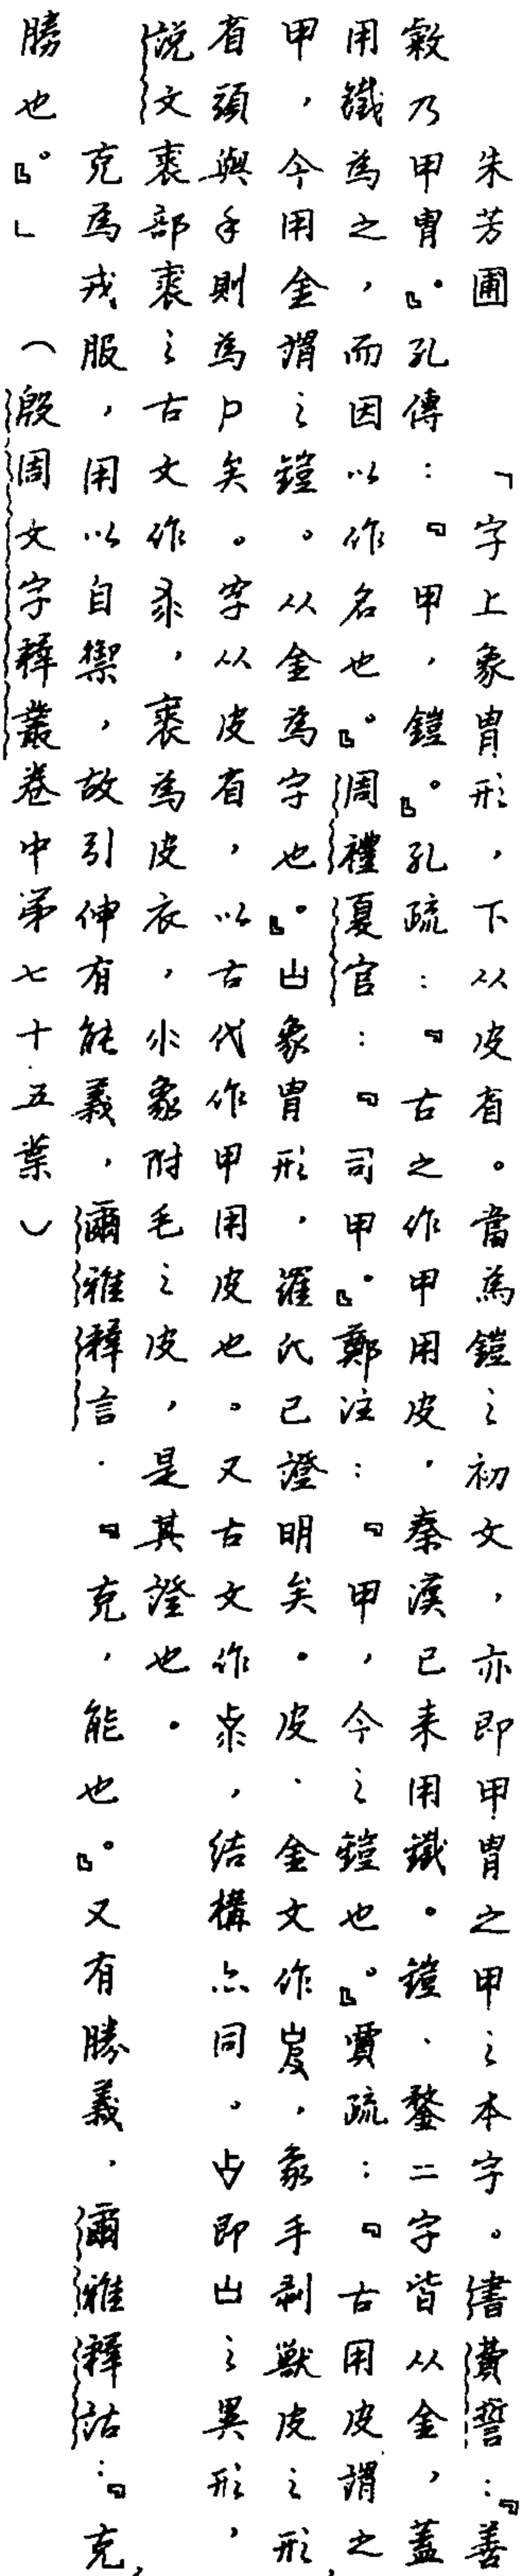 朱芳圃　「字上象冑形，下从皮省。當為鎧之初文，亦即甲冑之甲之本字。書費誓：『善
敹乃甲冑。』孔傳：『甲，鎧。』孔疏：『古之作甲用皮，秦漢已来用鐵。鎧、鍪二字皆从金，蓋
用鐵為之，而因以作名也。』周禮夏官：『司甲。』鄭注：『甲，今之鎧也。』賈疏：『古用皮謂之
甲，今用金謂之鎧。从金為字也。』象冑形，羅氏已證明矣。皮、金文作，象手剥獸皮之形，
省頭與手則為尸矣。字从皮省，以古代作甲用皮也。又古文作，結構亦同。即之異形，
説文裘部裘之古文作求，裘為皮衣，象附毛之皮，是其證也。
克為戎服，用以自禦，故引伸有能義，爾雅釋言．『克，能也。』又有勝義，爾雅釋詁：『克，
勝也。』」（殷周文字釋叢卷中第七十五葉）